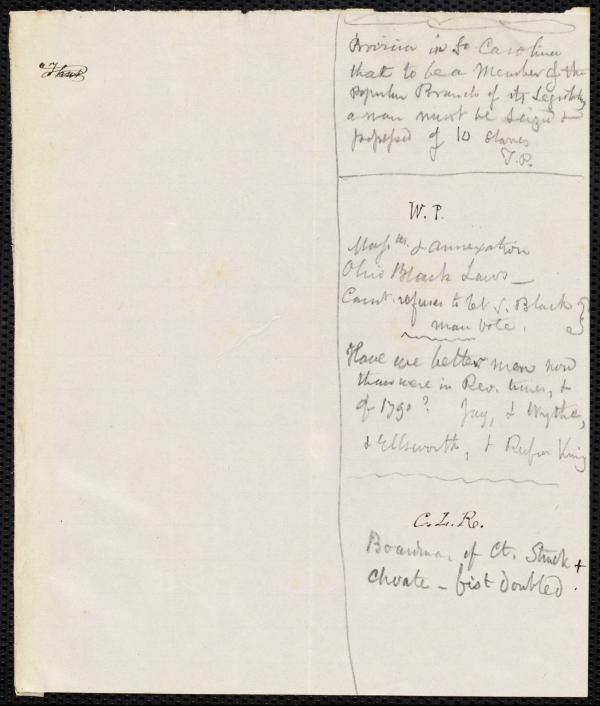 Provision in So Carolina
that to be a Member of the
popular Branch of its Legislat
a man must be Seized &
possessed of 10 Slaves
T.P.
W. P.
Mass tts. & Annexation
Ohio Black Laws —
Connt. refuses to let Black
man vote.
Have we better men now
than were in Rev. times, &
of 1790? Jay, & Wythe,
& Ellsworth, & Rufus King
C. L. R.
Boardman of Ct. Struck +
Choate – fist doubled.